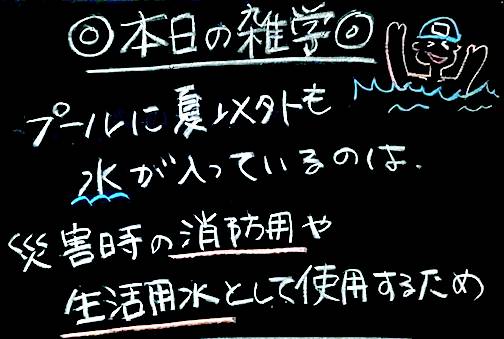 ◎本日の雑学◎
プールに夏以外も
水が入っているのは、
災害時の消防用や
生活用水として使用するため